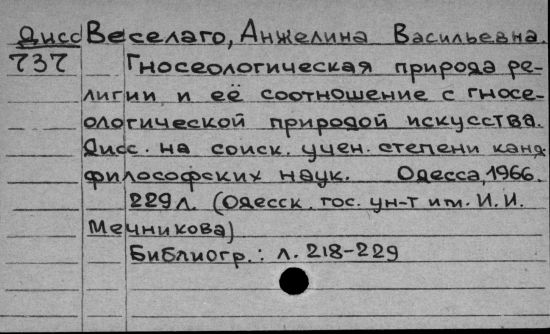 Дисс Веселаго, Анжелина Васильевна.
737 Гносеологическая природа ре-
лигии и её соотношение с гносе-
ологической природой искусства.
Дисс. на соиск. учен. степени канд.
философских наук. Одесса, 1966.
229 л. (Одесск. гос. ун-т им. И. И.
Мечникова)
Библиогр.: л. 218-229